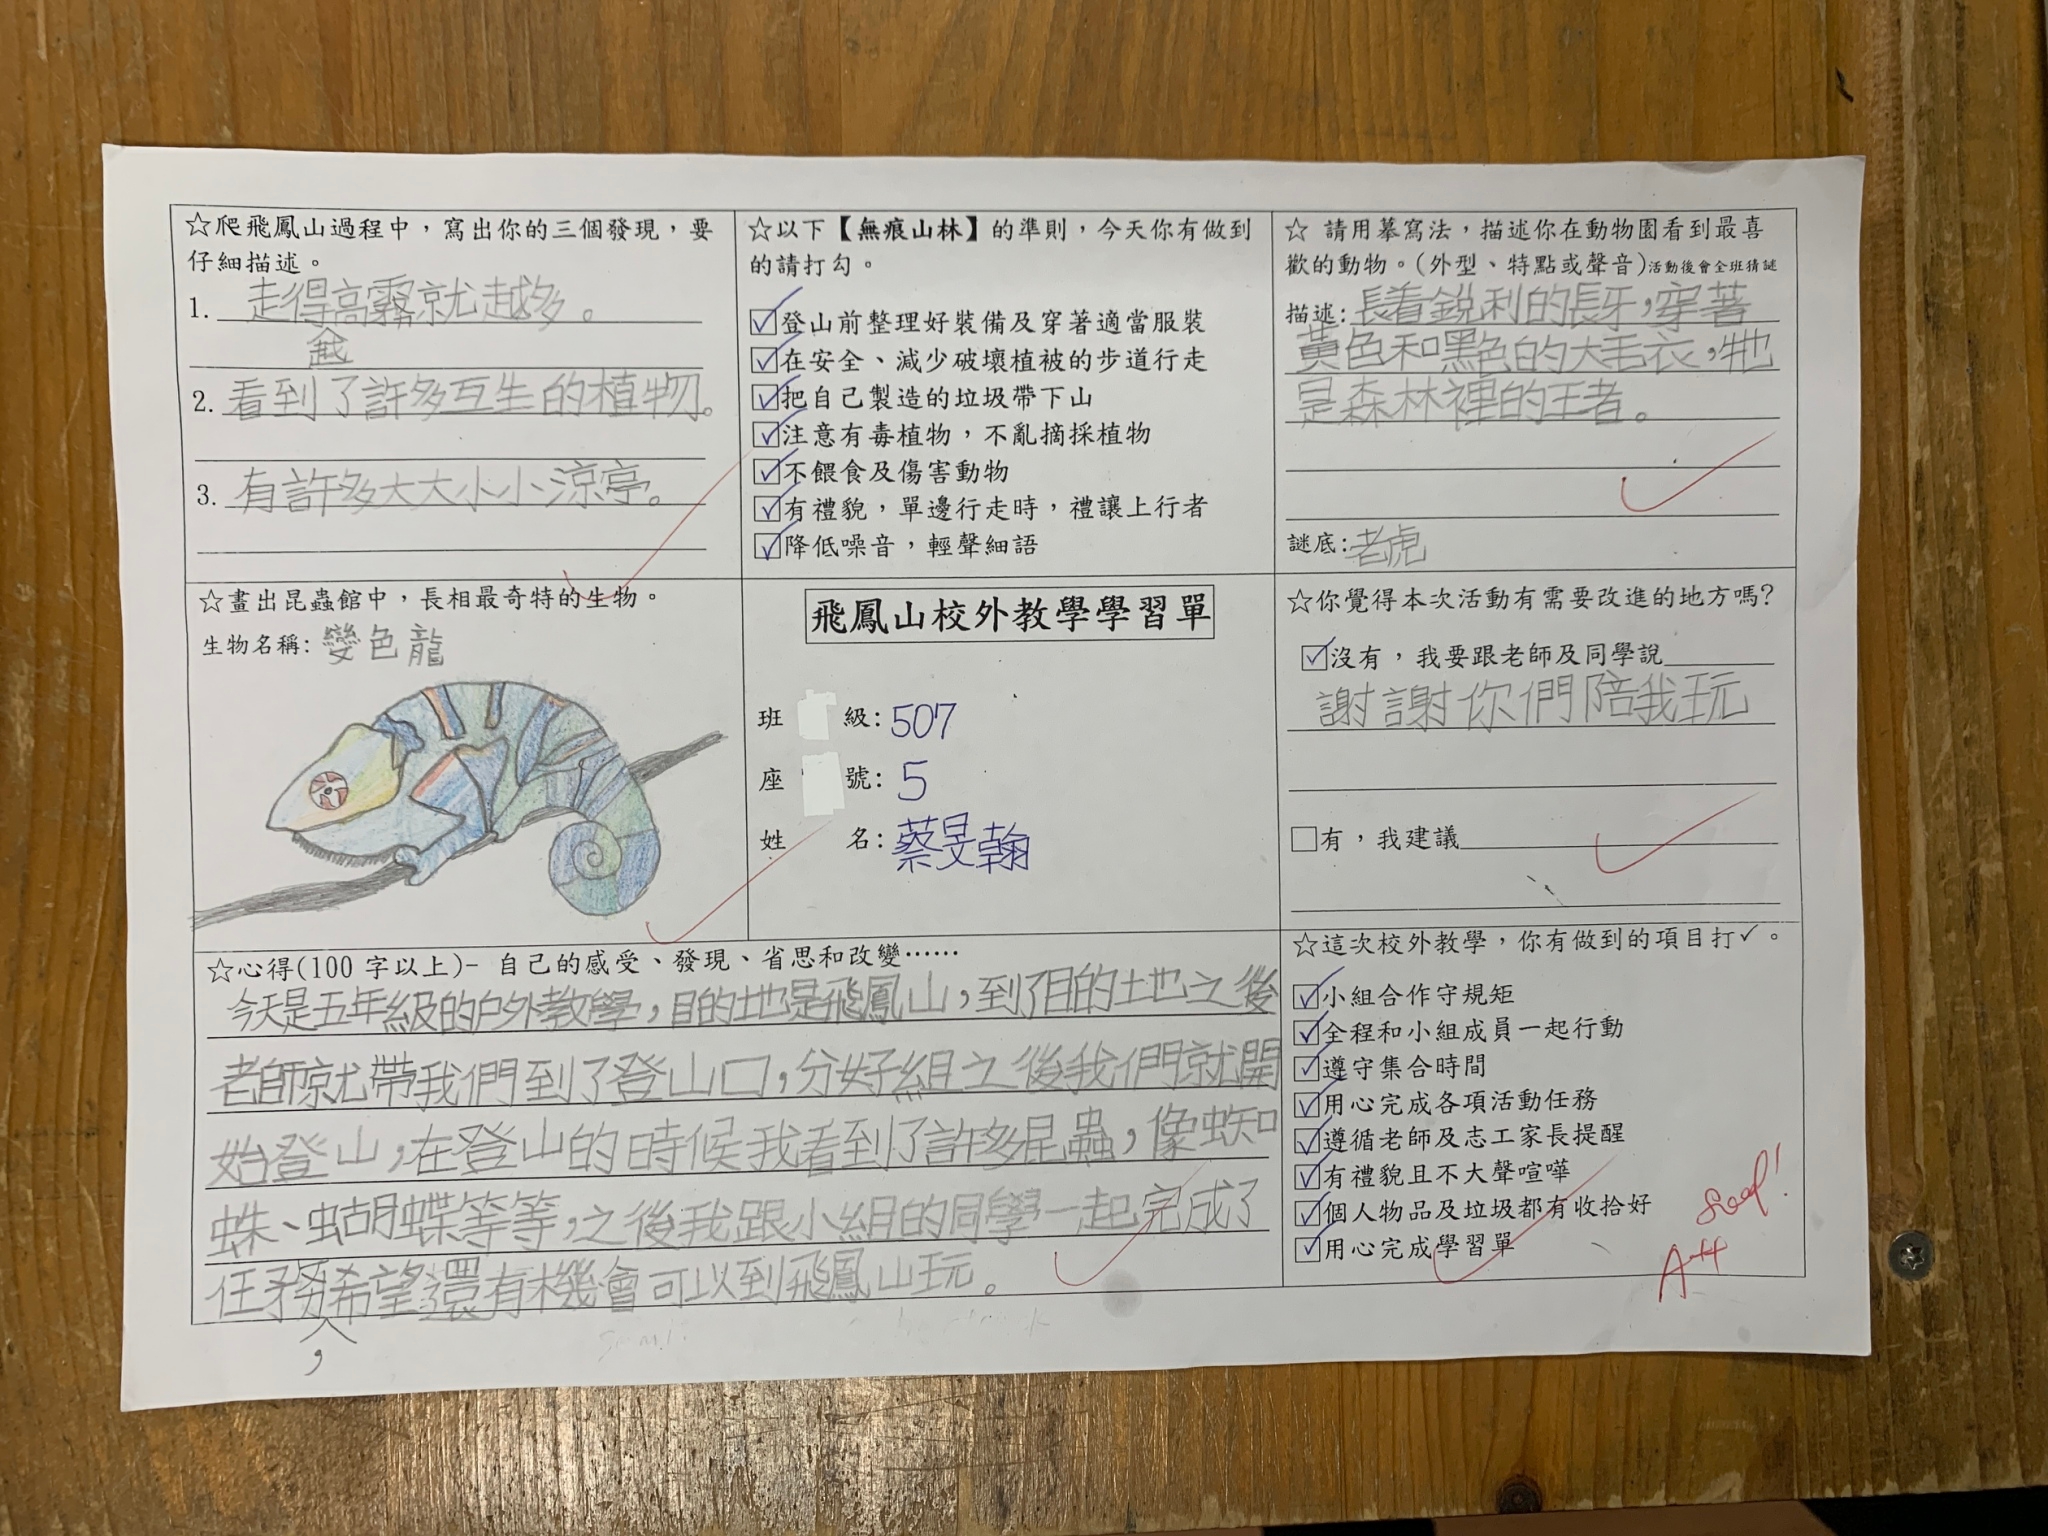 ☆爬飛鳳山過程中，寫出你的三個發現，要
仔細描述。
1. 走得高霧就越多。
越
2. 看到了許多互生的植物。
3. 有許多大大小小涼亭。
☆以下【無痕山林】的準則，今天你有做到
的請打勾。
☑登山前整理好裝備及穿著適當服裝
☑在安全、減少破壞植被的步道行走
☑把自己製造的垃圾帶下山
☑注意有毒植物，不亂摘採植物
☑不餵食及傷害動物
☑有禮貌，單邊行走時，禮讓上行者
☑降低噪音，輕聲細語
☆ 請用摹寫法，描述你在動物園看到最喜
歡的動物。(外型、特點或聲音)活動後會全班猜謎
描述:長着銳利的長牙，穿著
黃色和黑色的大毛衣，牠
是森林裡的王者。
謎底:老虎
☆畫出昆蟲館中，長相最奇特的生物。
生物名稱: 變色龍
飛鳳山校外教學學習單
班 級: 507
座 號: 5
姓 名: 蔡旻翰
☆你覺得本次活動有需要改進的地方嗎?
☑沒有，我要跟老師及同學說
謝謝你們陪我玩
☐有，我建議
☆心得(100字以上)- 自己的感受、發現、省思和改變……
今天是五年級的戶外教學，目的地是飛鳳山，到了目的地之後
老師就帶我們到了登山口，分好組之後我們就開
始登山，在登山的時候我看到了許多昆蟲，像蜘
蛛、蝴蝶等等，之後我跟小組的同學一起完成了
任務希望還有機會可以到飛鳳山玩。
，
☆這次校外教學，你有做到的項目打✓。
☑小組合作守規矩
☑全程和小組成員一起行動
☑遵守集合時間
☑用心完成各項活動任務
☑遵循老師及志工家長提醒
☑有禮貌且不大聲喧嘩
☑個人物品及垃圾都有收拾好
☑用心完成學習單
Good!
A++